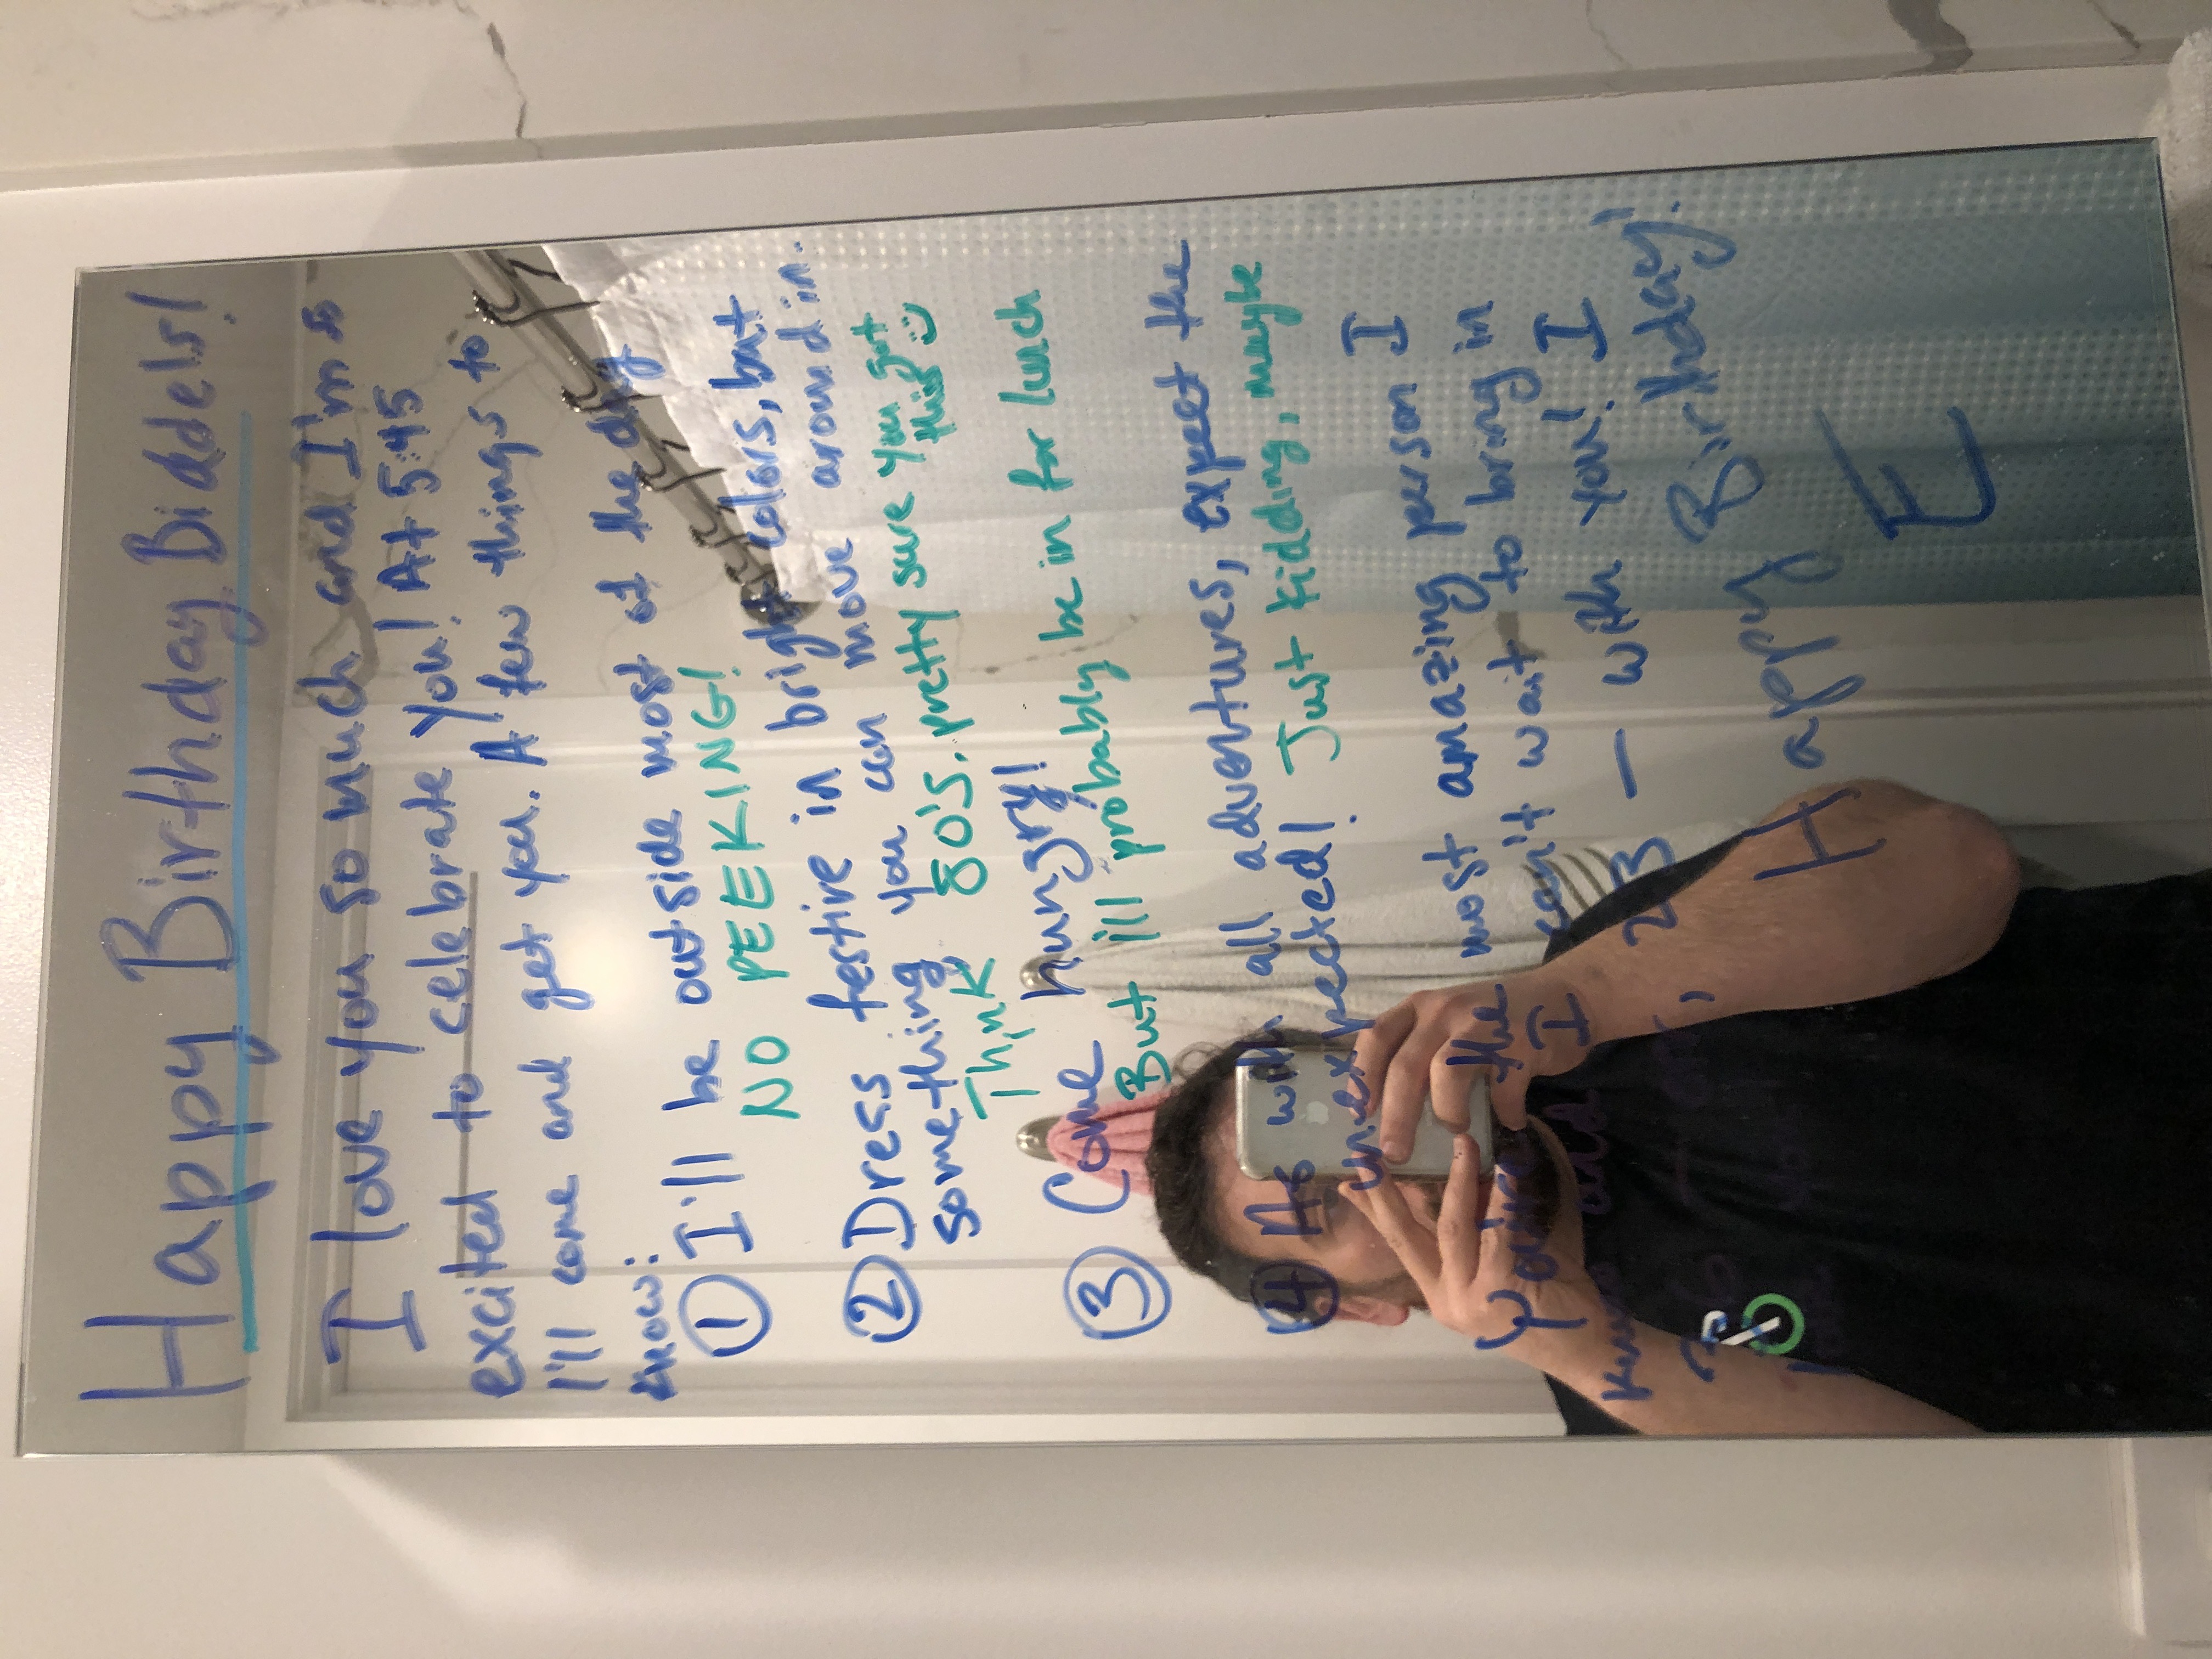 Happy Birthday Biddels!
I love you so much and I'm so
excited to celebrate you! At 5:45
I'll come and get you. A few things to
know:
① I'll be outside most of the day
NO PEEKING!
② Dress festive in bright colors, but
something you can move around in.
Think 80's. pretty sure you got
this :)
③ Come hungry!
But i'll probably be in for lunch
④ As with all adventures, expect the
unexpected! Just kidding, maybe
You're the most amazing person I
know and I can't wait to bring in
23 — with you! I
you
Happy Birthday!
E